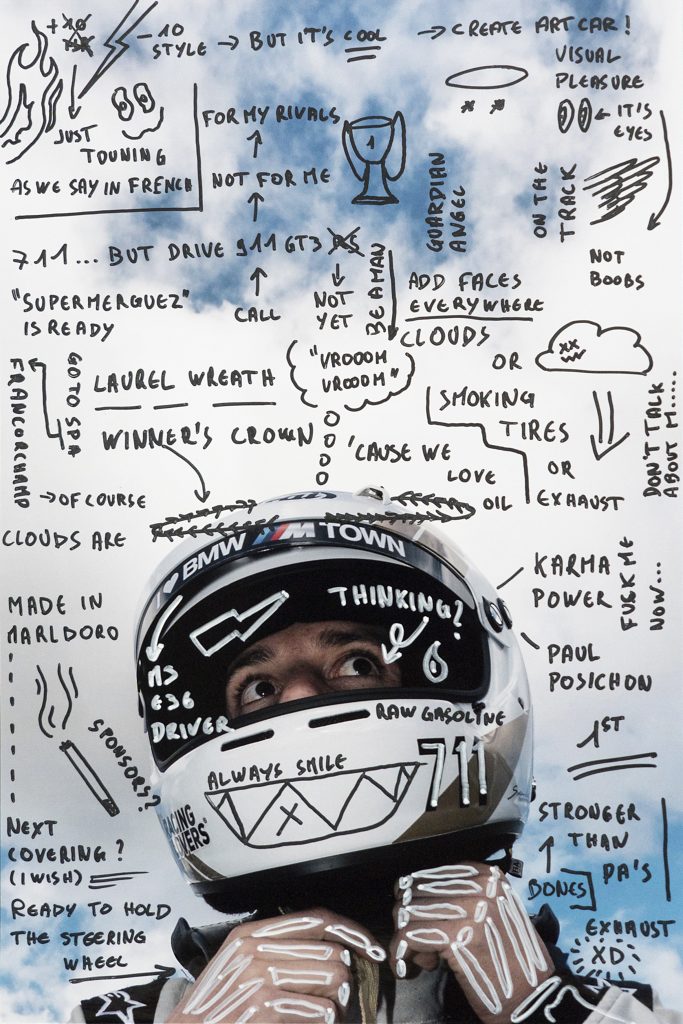 +10
-10
STYLE → BUT IT'S COOL → CREATE ART CAR!
JUST
TOUNING
AS WE SAY IN FRENCH
VISUAL
PLEASURE
← IT'S
EYES
NOT
BOOBS
ON THE
TRACK
FOR MY RIVALS
NOT FOR ME
1
GUARDIAN
ANGEL
711... BUT DRIVE 911 GT3 RS
CALL
NOT
YET
BE A MAN
"SUPERMERGUEZ"
IS READY
ADD FACES
EVERYWHERE
CLOUDS
OR
XX
SMOKING
TIRES
OR
EXHAUST
DON'T TALK
ABOUT M.....
"VROOOM
VROOOM"
GO TO SPA
FRANCORCHAMP
LAUREL WREATH
WINNER'S CROWN
'CAUSE WE
LOVE
OIL
→ OF COURSE
CLOUDS ARE
MADE IN
MARLBORO
BMW M TOWN
THINKING?
6
M3
E36
DRIVER
RAW GASOLINE
KARMA
POWER
FUCK ME
NOW...
PAUL
POSICHON
ALWAYS SMILE
X
711
1ST
SPONSORS?
NEXT
COVERING?
(I WISH)
READY TO HOLD
THE STEERING
WHEEL
STRONGER
THAN
PA'S
BONES
EXHAUST
XD